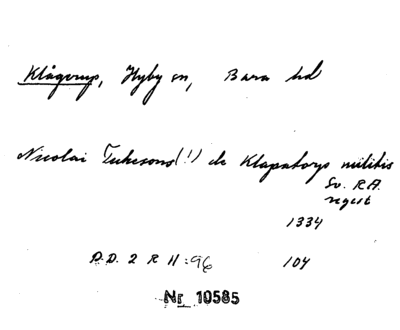 Klågerup, Hyby sn, Bara hd
Nicolai Tukesons (!) de Klapatorp militis
Sv. R.A.
regest
1334
D.D. 2 R 11:96 104
Nr 10585